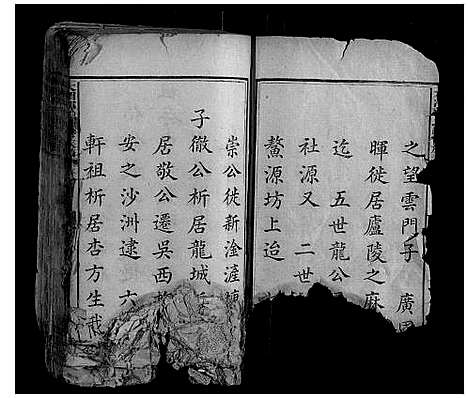 之望雲門子 廣
暉徙居廬陵之麻
迄 五世龍公
社源又 二世
鰲源坊上迨
崇公徙新淦
子徹公析居龍城
居敬公遷吳西
安之沙洲逮 六
軒祖析居杏方生